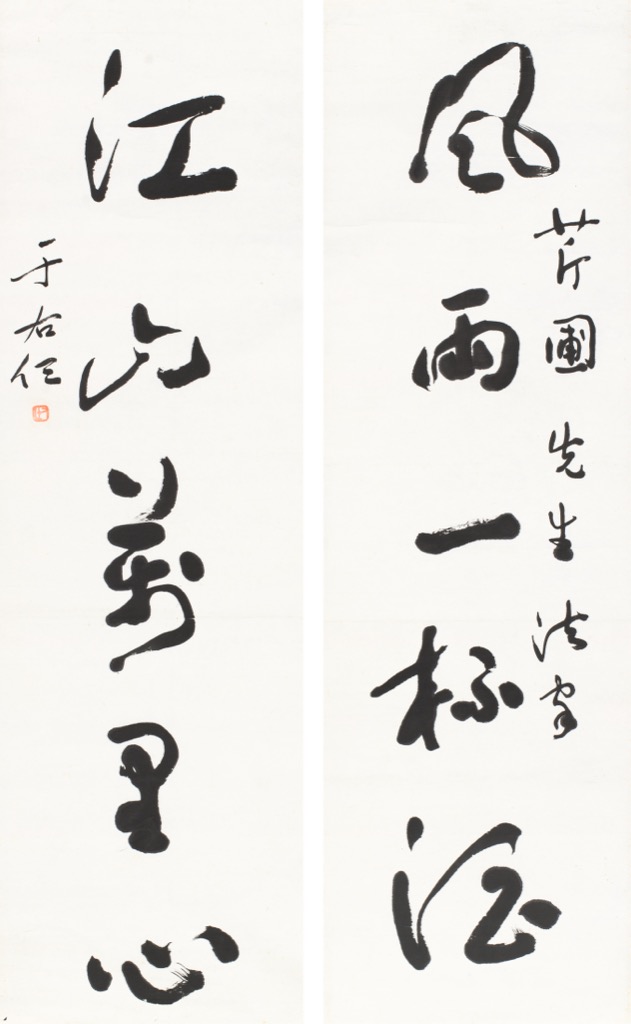 風雨一杯酒
芹圃先生法家
江山萬里心
于右任